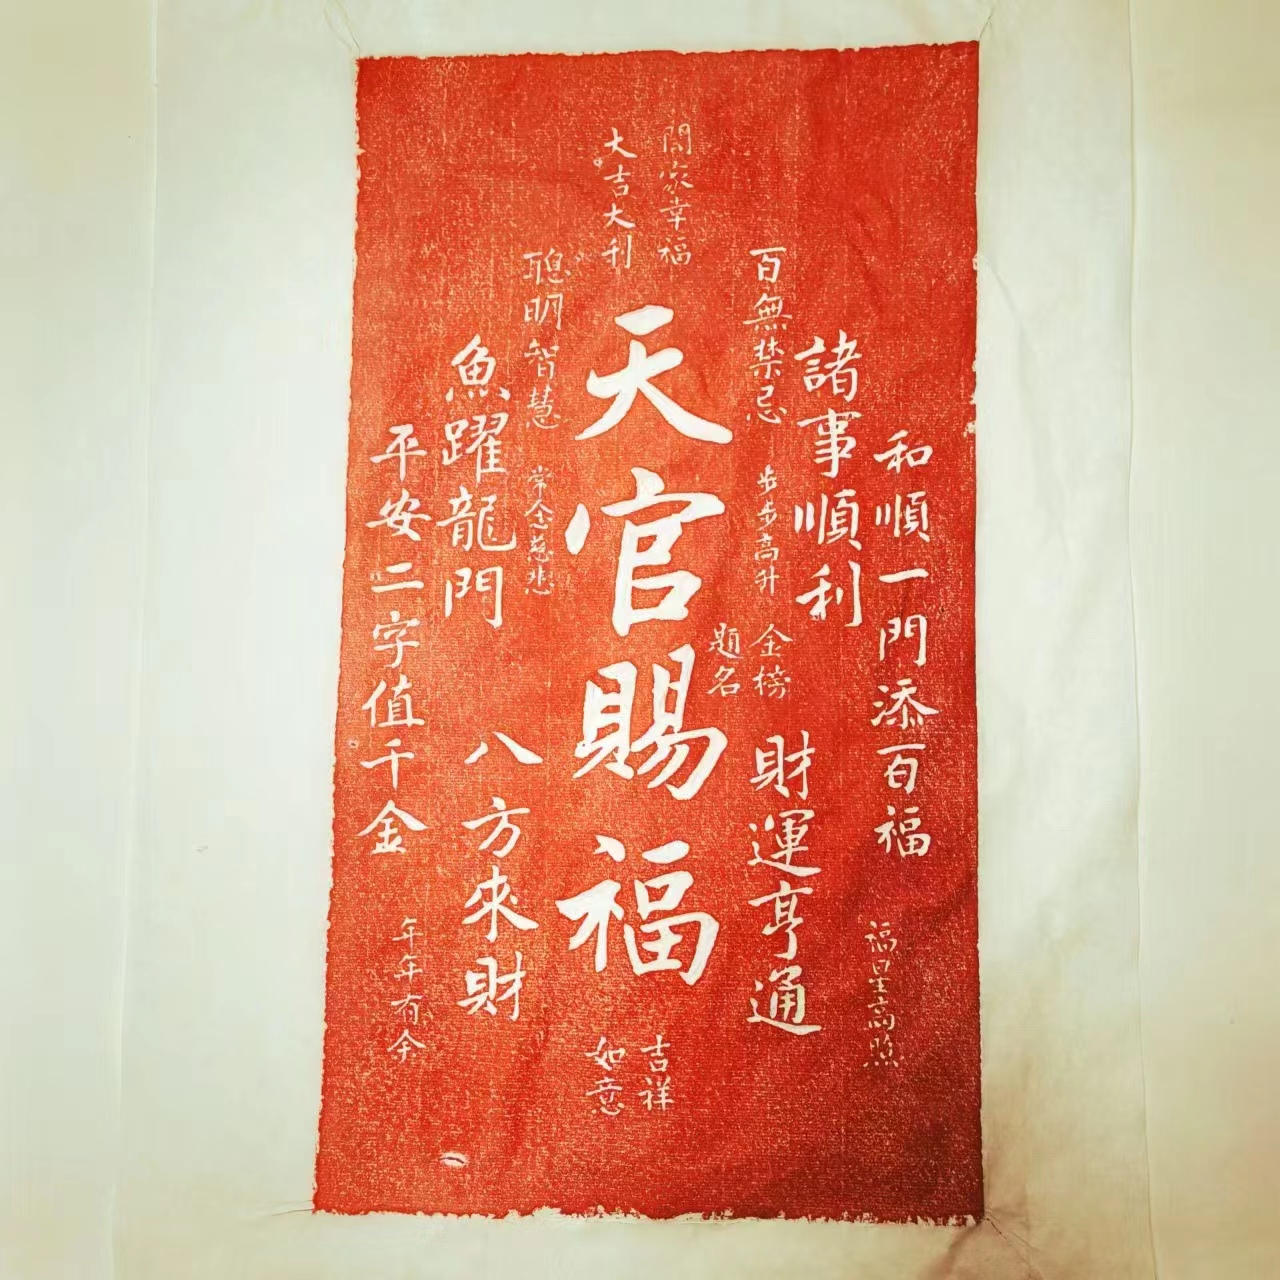 和順一門添百福
福星高照
諸事順利
百無禁忌
步步高升
金榜
題名
財運亨通
闔家幸福
大吉大利
天官賜福
吉祥
如意
聰明智慧
常念慈悲
魚躍龍門
八方來財
平安二字值千金
年年有余